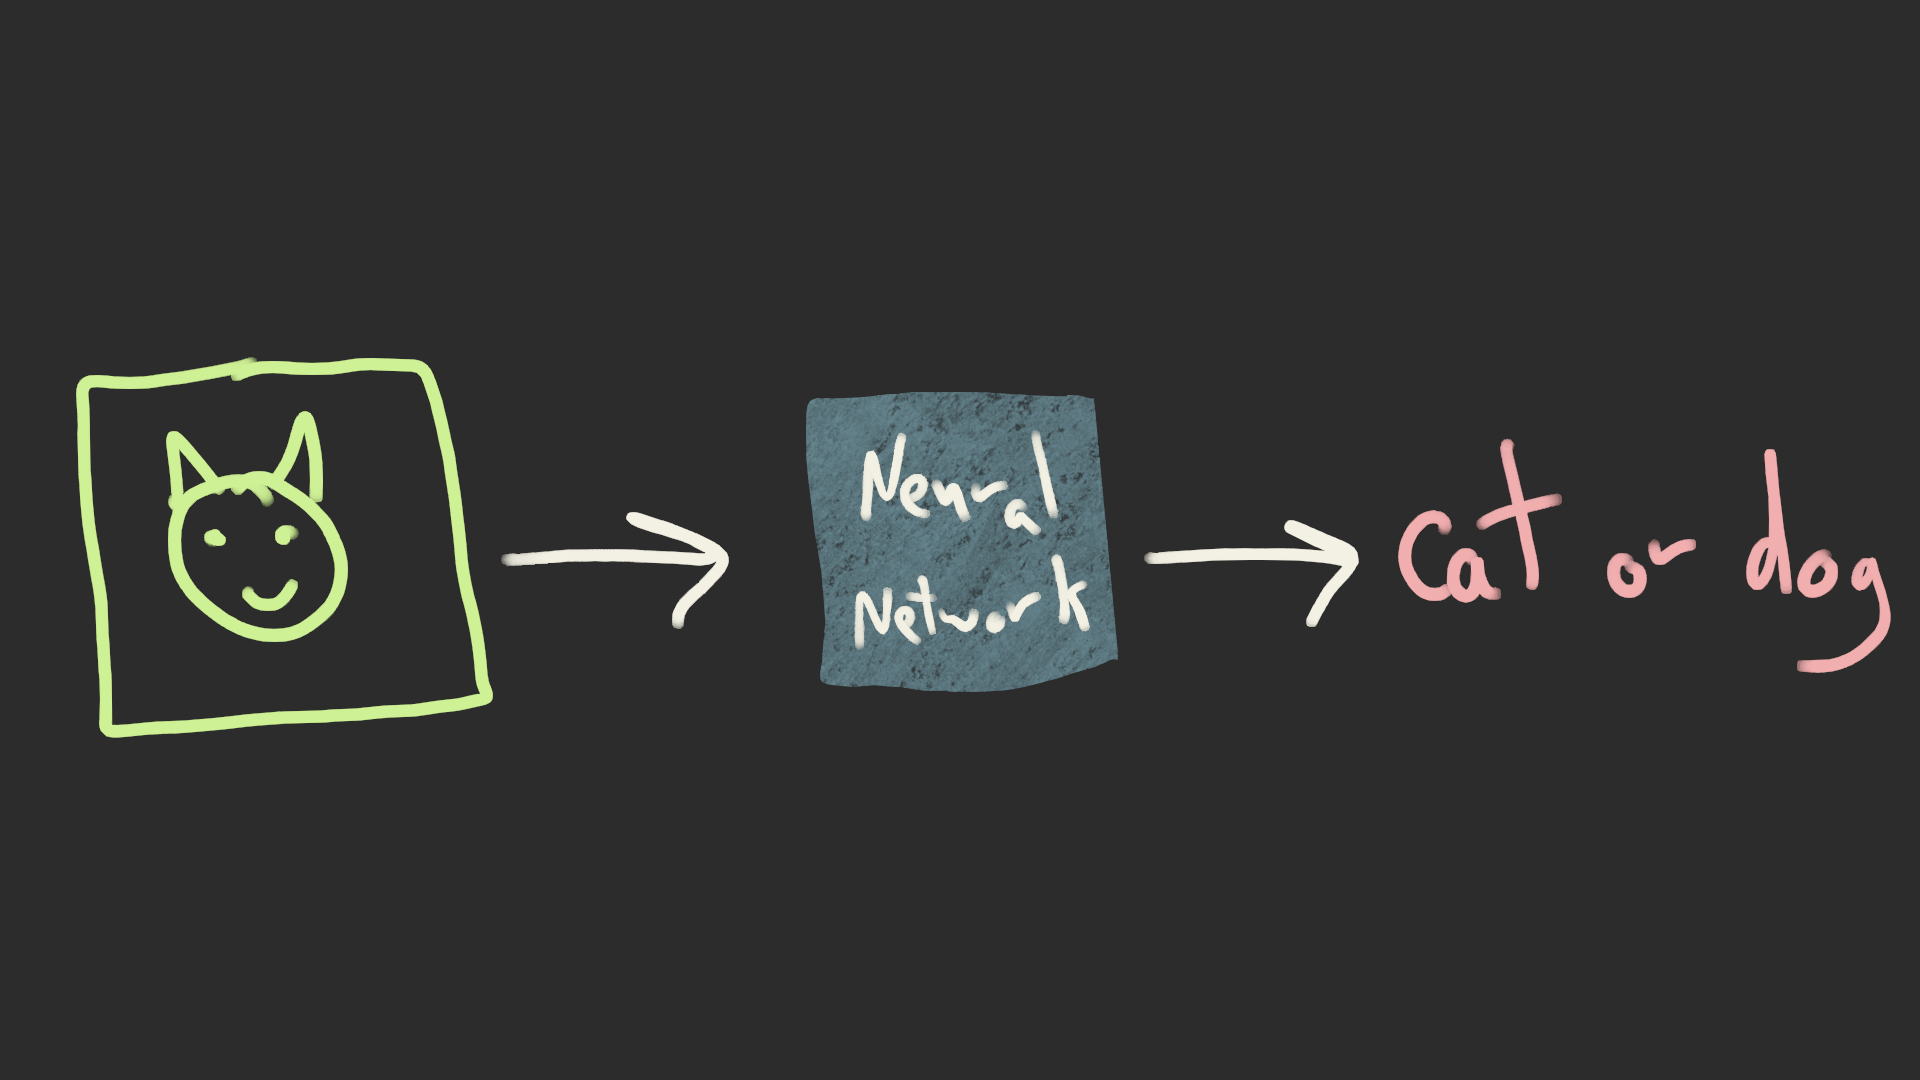 Neural
Network
cat or dog